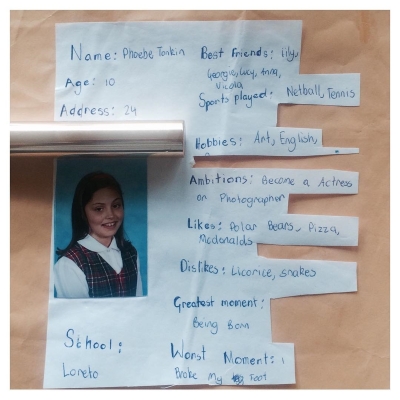 Name: Phoebe Tonkin
Age: 10
Address: 24
School:
Loreto
Best Friends: Lily,
Georgie, Lucy, Anna,
Nicola
Sports played: Netball, Tennis
Hobbies: Art, English,
Ambitions: Become a Actress
or Photographer
Likes: Polar Bears, Pizza,
Mcdonalds
Dislikes: Licorice, snakes
Greatest moment:
Being Born
Worst Moment: I
Broke My Foot